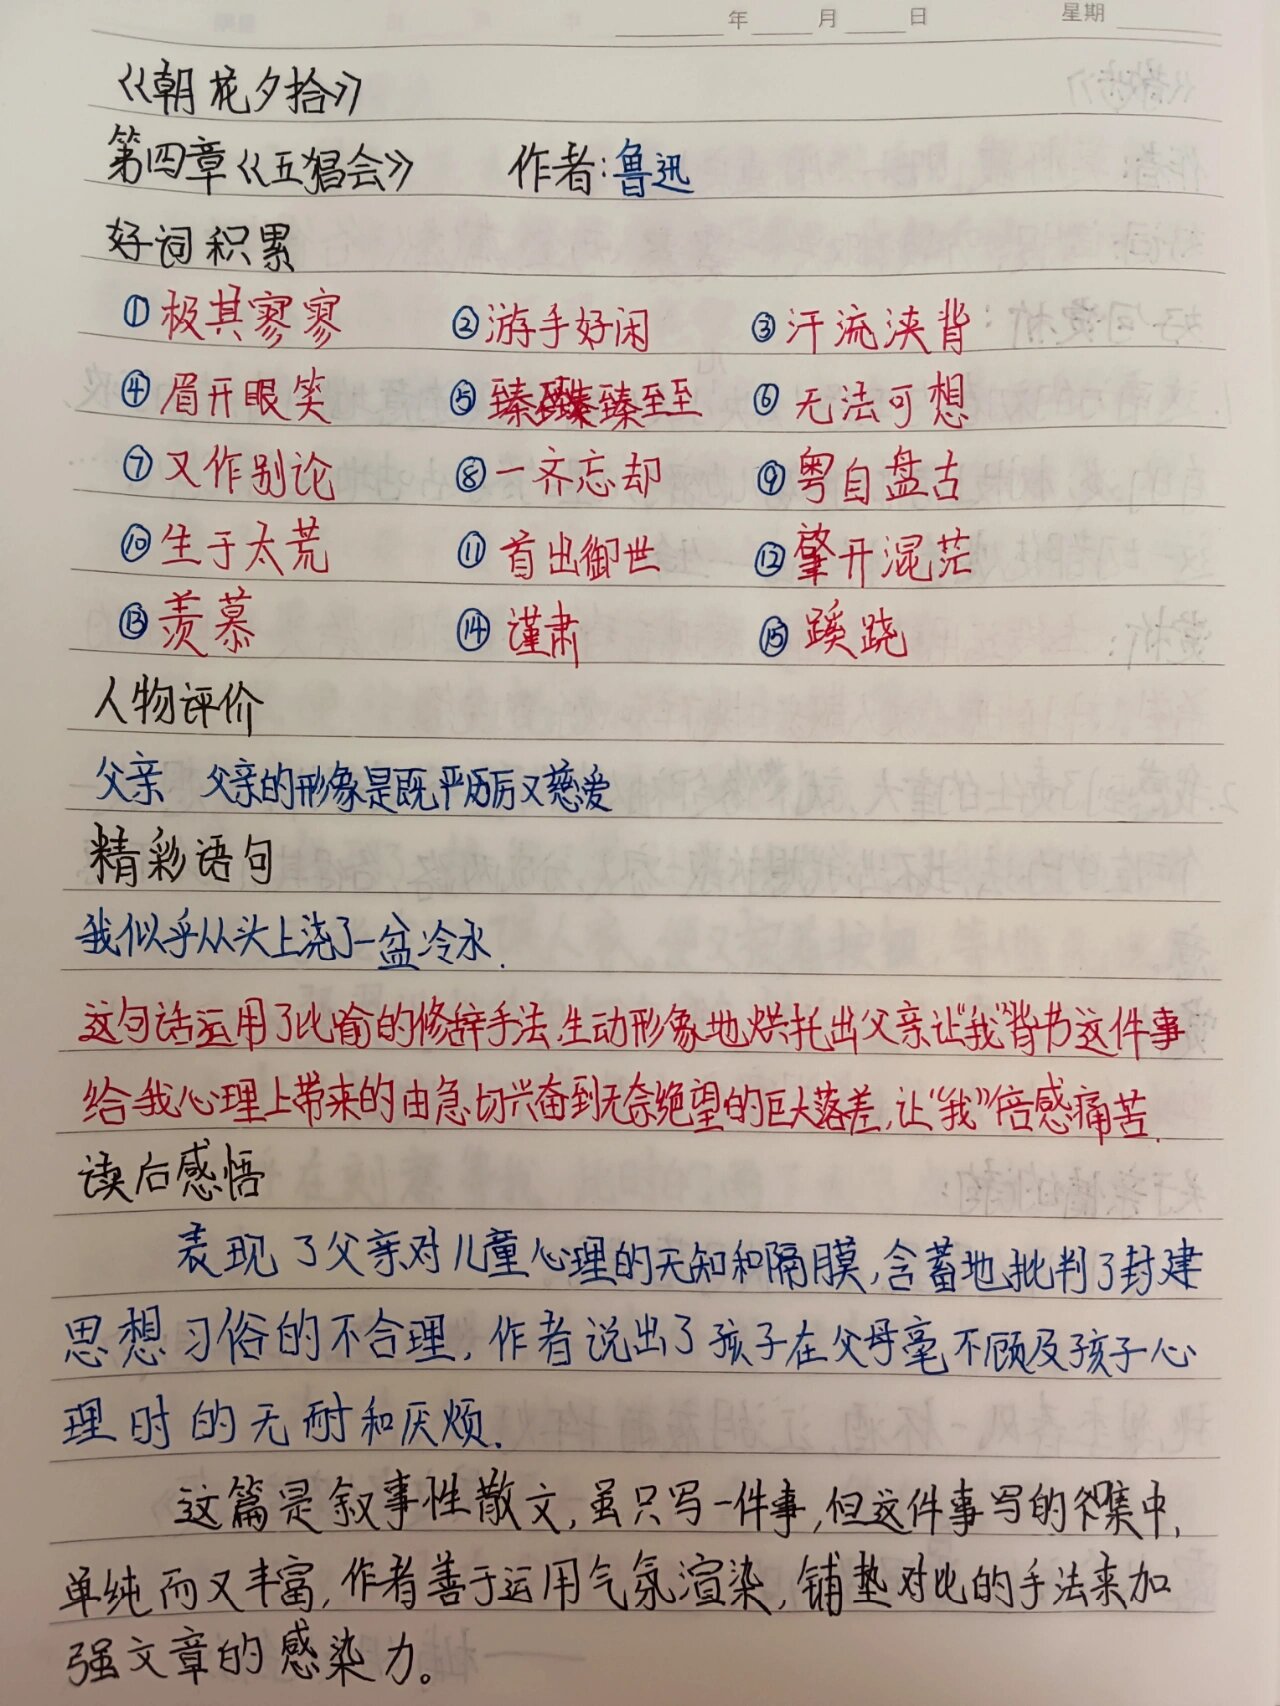 年 月 日 星期
《朝花夕拾》
第四章《五猖会》 作者:鲁迅
好词积累
①极其寥寥 ②游手好闲 ③汗流浃背
④眉开眼笑 ⑤臻臻至至 ⑥无法可想
⑦又作别论 ⑧一齐忘却 ⑨粤自盘古
⑩生于太荒 ⑪首出御世 ⑫肇开混茫
⑬羡慕 ⑭谨肃 ⑮蹊跷
人物评价
父亲 父亲的形象是既严厉又慈爱
精彩语句
我似乎从头上浇了一盆冷水.
这句话运用了比喻的修辞手法,生动形象地烘托出父亲让“我”背书这件事
给我心理上带来的由急切兴奋到无奈绝望的巨大落差,让“我”倍感痛苦.
读后感悟
表现了父亲对儿童心理的无知和隔膜,含蓄地批判了封建
思想习俗的不合理,作者说出了孩子在父母毫不顾及孩子心
理时的无耐和厌烦.
这篇是叙事性散文,虽只写一件事,但这件事写的很集中,
单纯而又丰富,作者善于运用气氛渲染,铺垫对比的手法来加
强文章的感染力。